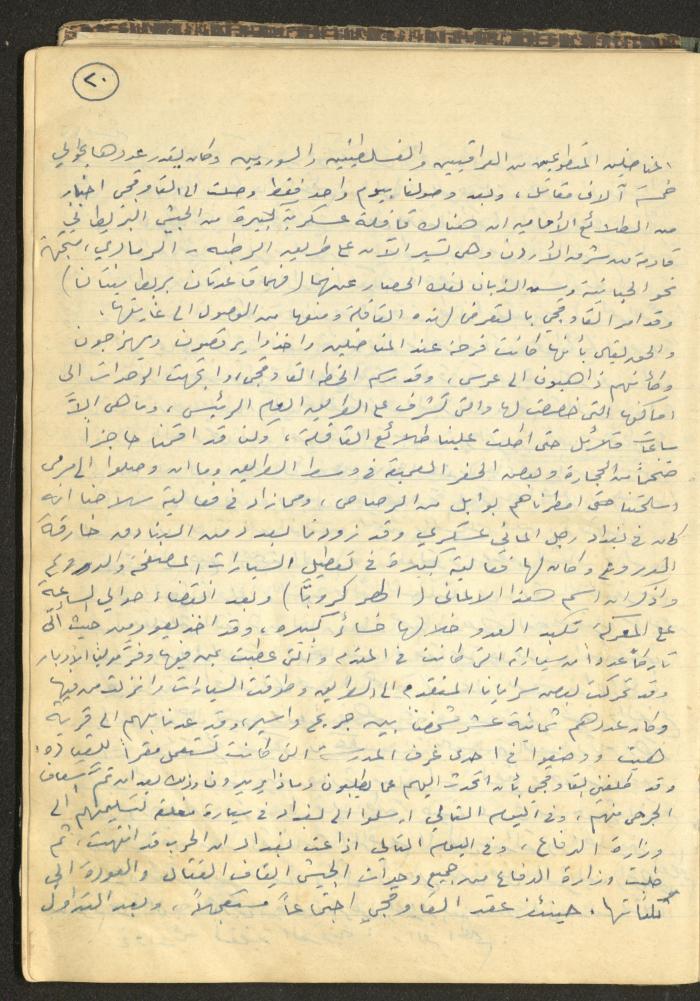 ٢٠
المناضلين المتطوعين من العراقيين والفلسطينيين والسوريين وكان يقدر عددها بحوالي
خمسة آلاف مقاتل، وبعد وصولنا بيوم واحد فقط وصلت الى القاوقجي اخبار
من الطلائع الأمامية ان هناك قافلة عسكرية كبيرة من الجيش البريطاني
قادمة من شرق الأردن وهي تسير الآن على طريق الرطبه - الرمادي، متجهة
نحو الحبانية وسن الذبان لفك الحصار عنهما (فهما قاعدتان بريطانيتان)
وقد امر القاوقجي بالتعرض لهذه القافلة ومنعها من الوصول الى غايتها.
والحق يقال بأنها كانت فرحة عند المناضلين واخذوا يرقصون ويهزجون
وكأنهم ذاهبون الى عرس، وقد رسم الخطه القاوقجي، واتجهت الوحدات الى
اماكنها التي خصصت لها والتي تشرف على الطريق العام الرئيسي، وما هي الاّ
ساعات قلائل حتى اطلت علينا طلائع القافلة، ولقد اقمنا حاجزاً
ضخماً من الحجارة وبعض الحفر العميقة في وسط الطريق وما ان وصلوا الى مرمى
اسلحتنا حتى امطرناهم بوابل من الرصاص، ومما زاد في فعالية سلاحنا انه
كان في بغداد رجل الماني عسكري وقد زودنا بعدد من البنادق خارقة
الدروع وكان لها فعالية كبيرة في تعطيل السيارات المصفحة والدروع
واذكر ان اسم هذا الالماني (الهر كروبّا) وبعد انقضاء حوالي الساعة
على المعركة تكبد العدو خلالها خسائر كبيره، وقد اخذ يعود من حيث أتى
تاركاً عدداً من سياراته التي كانت في المقدمه والتي عطبت بمن فيها وفرّ مولياً الادبار
وقد تحركت بعض سرايانا المتقدمه الى الطريق وطوقت السيارات وانزلت من فيها
وكان عددهم ثمانية عشر شخصاً بين جريح واسير، وقد عدنا بهم الى قرية
هيت ووضعوا في احدى غرف المدرسة التي كانت تستعمل مقراً للقياده،
وقد كلفني القاوقجي بأن اتحدث اليهم عما يطلبون وماذا يريدون وذلك بعد ان تمّ اسعاف
الجرحى منهم، وفي اليوم التالي ارسلوا الى بغداد في سيارة مغلقة لتسليمهم الى
وزارة الدفاع، وفي اليوم التالي اذاعت بغداد ان الحرب قد انتهت، ثم
طلبت وزارة الدفاع من جميع وحدات الجيش ايقاف القتال والعودة الى
ثكناتها. حينئذ عقد القاوقجي اجتماعاً مستعجلاً، وبعد التداول